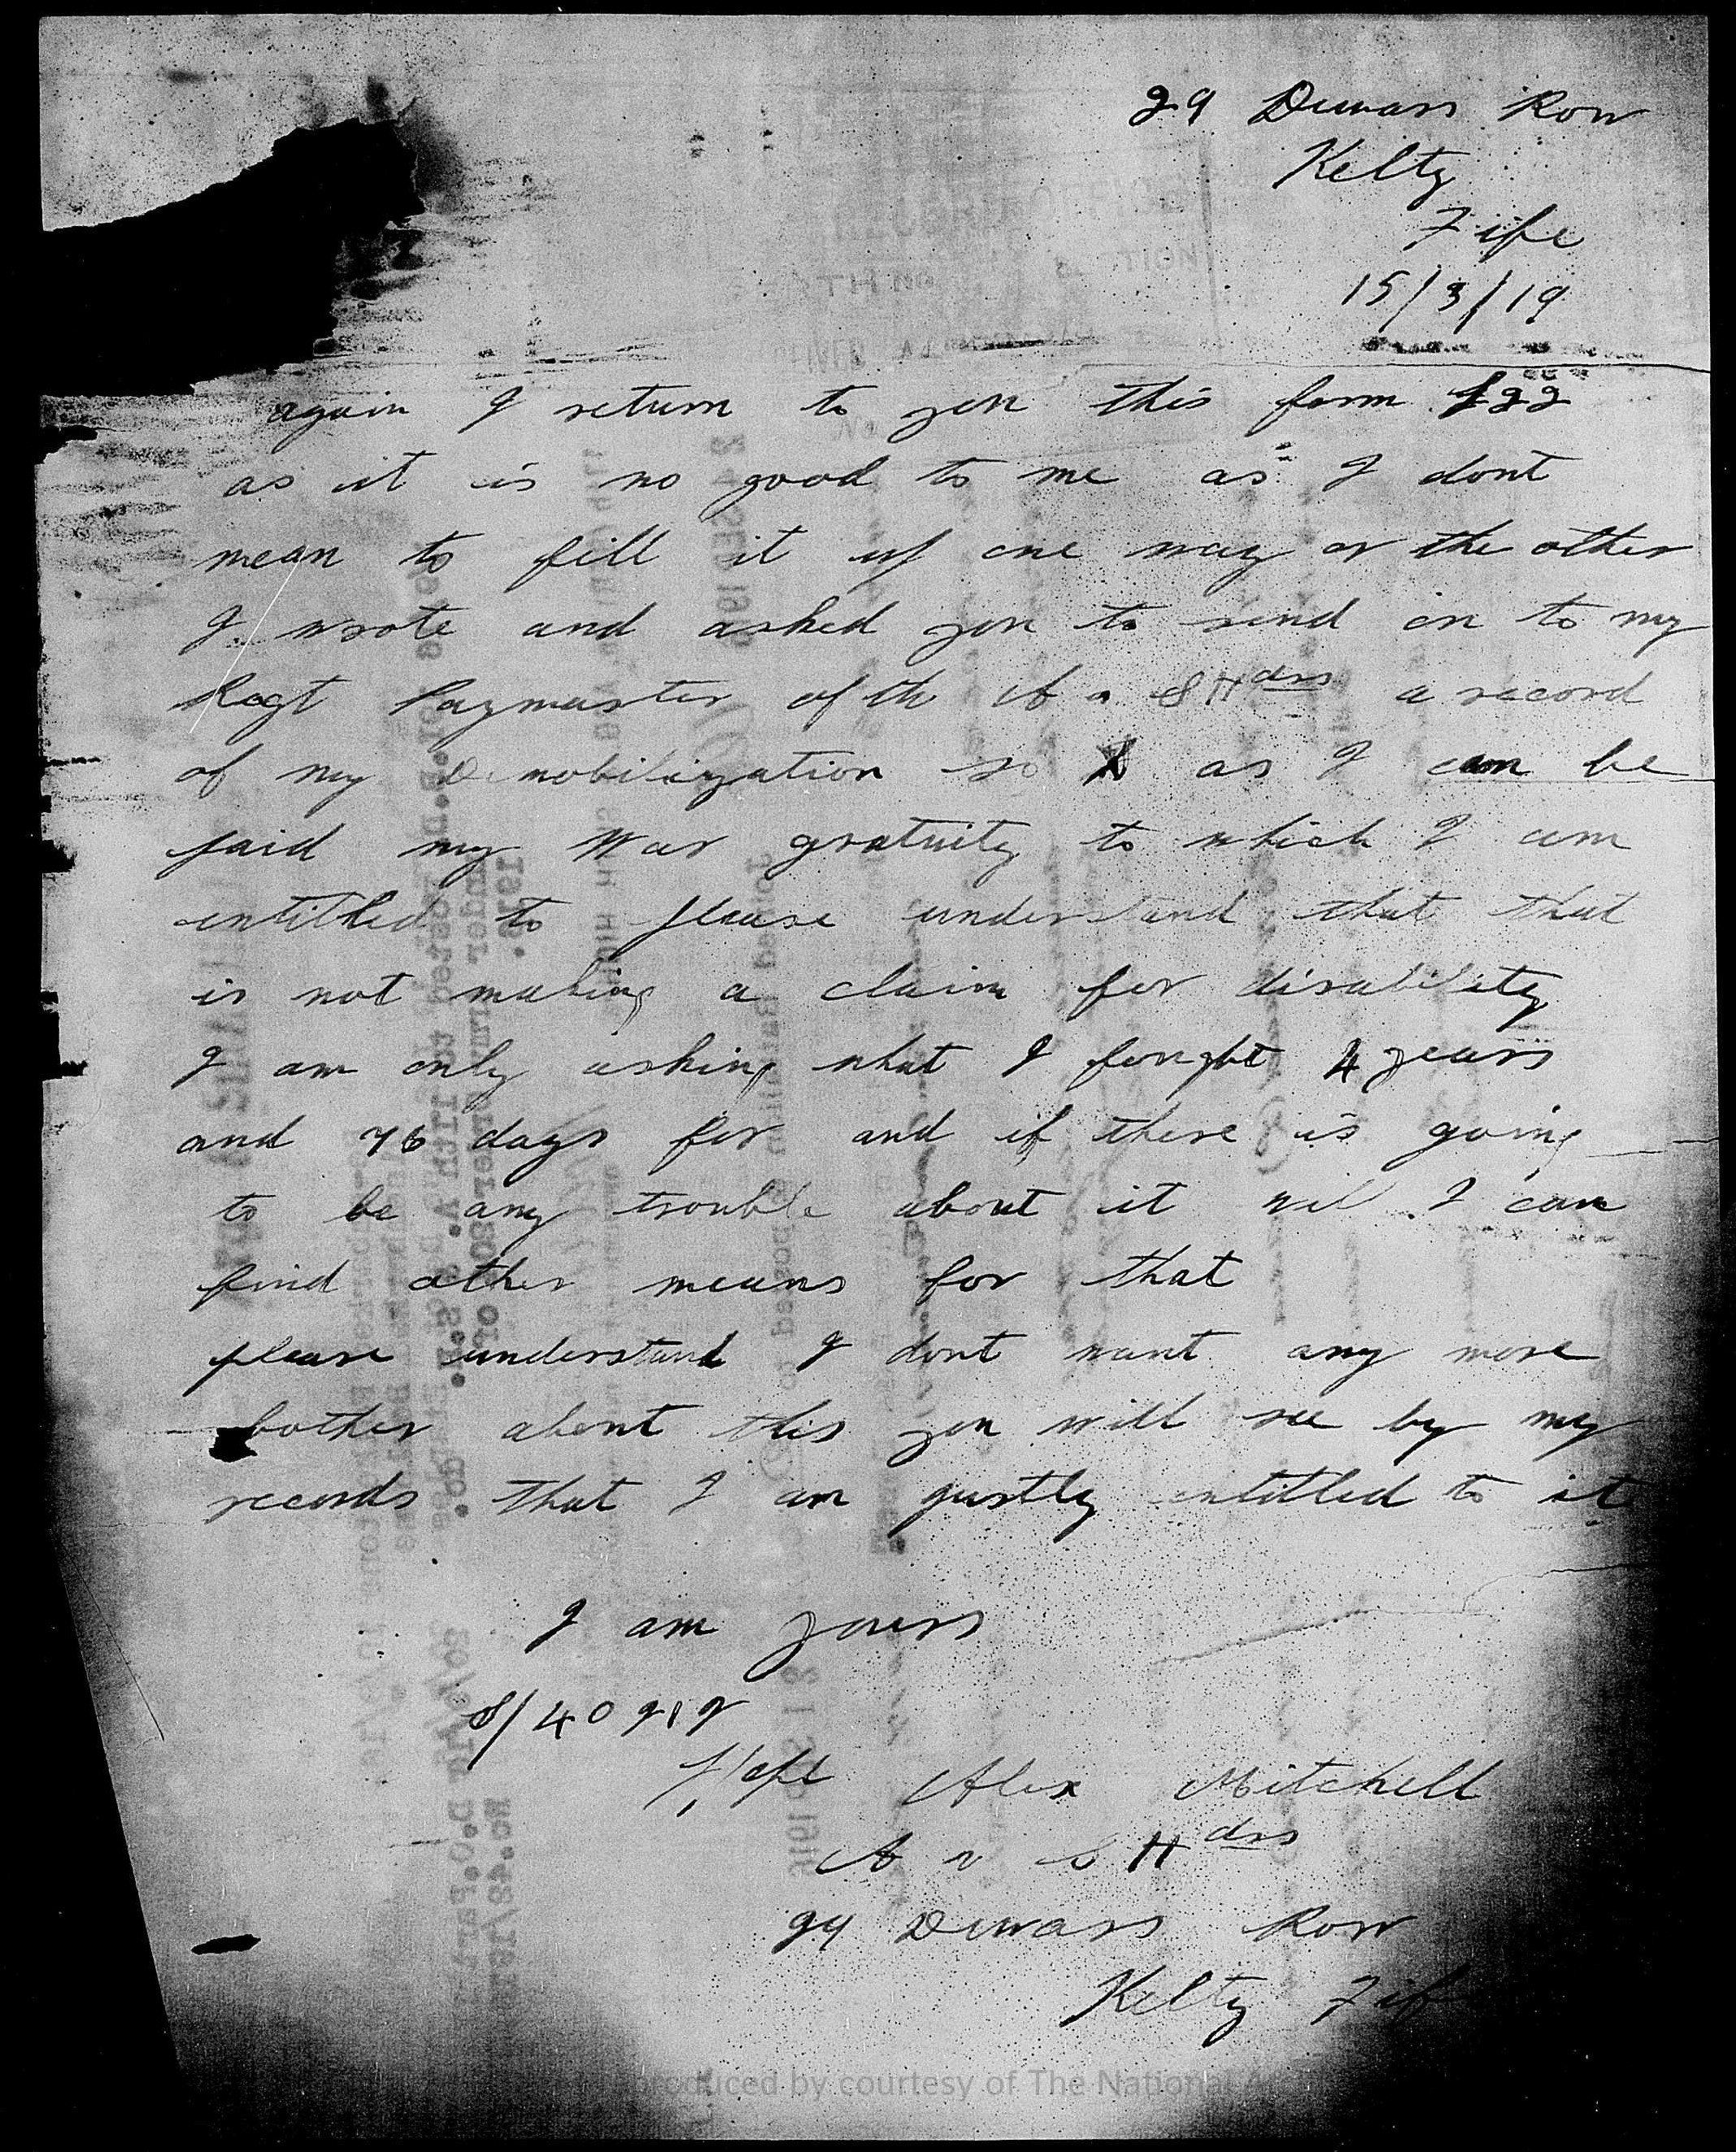 29 Dewars Row
Kelty
Fife
15/3/19
again I return to you this form Z22
as it is no good to me as I dont
mean to fill it up one way or the other
I wrote and asked you to send on to my
Regt Paymaster of the A & S Hdrs a record
of my Demobilization so as I can be
paid my War gratuity to which I am
entitled to please understand that that
is not making a claim for disability
I am only asking what I fought 4 years
and 76 days for and if there is going
to be any trouble about it I can
find other means for that
please understand I dont want any more
bother about this you will see by my
records that I am justly entitled to it
I am yours
S/40
L/Cpl Alex Mitchell
A & S Hdrs
29 Dewars Row
Kelty Fife
produced by courtesy of The National